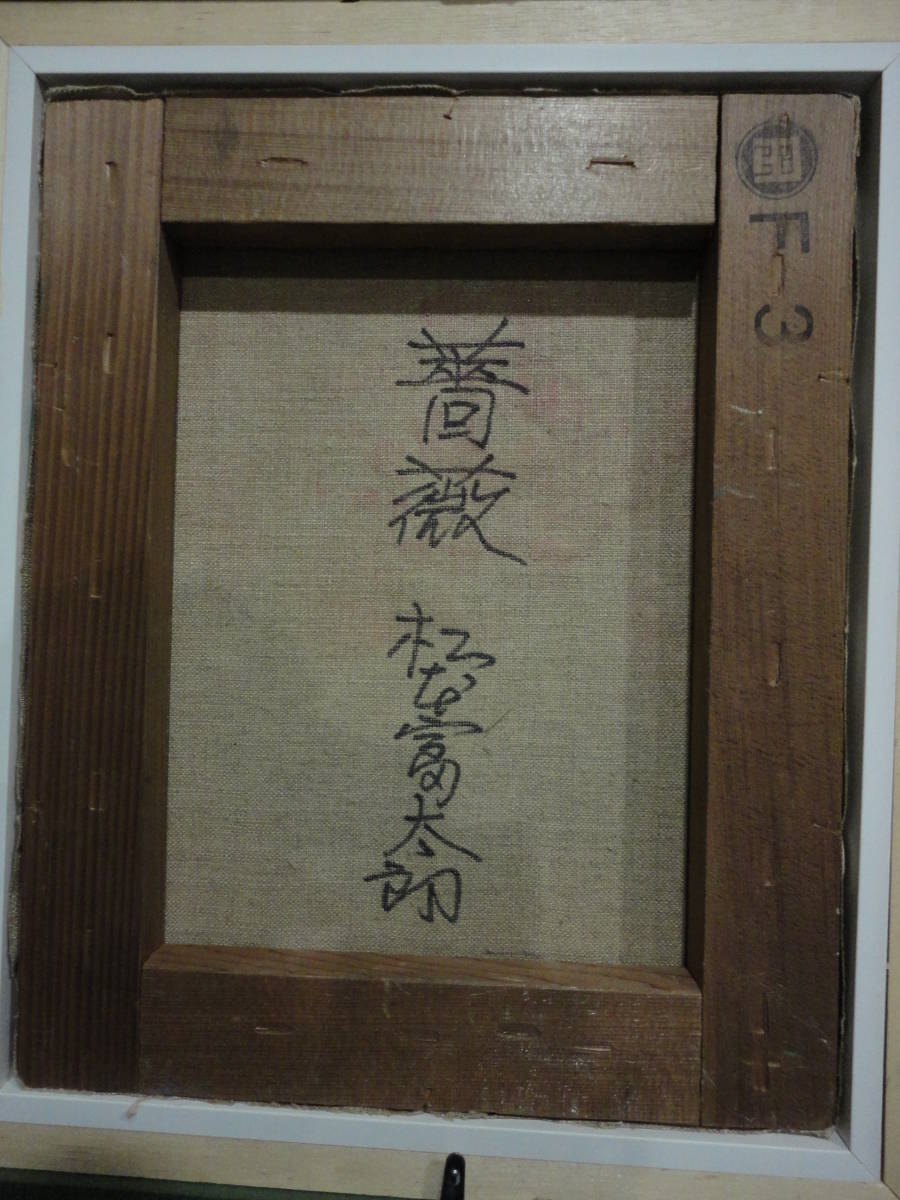 薔薇 松本富太郎
F-3